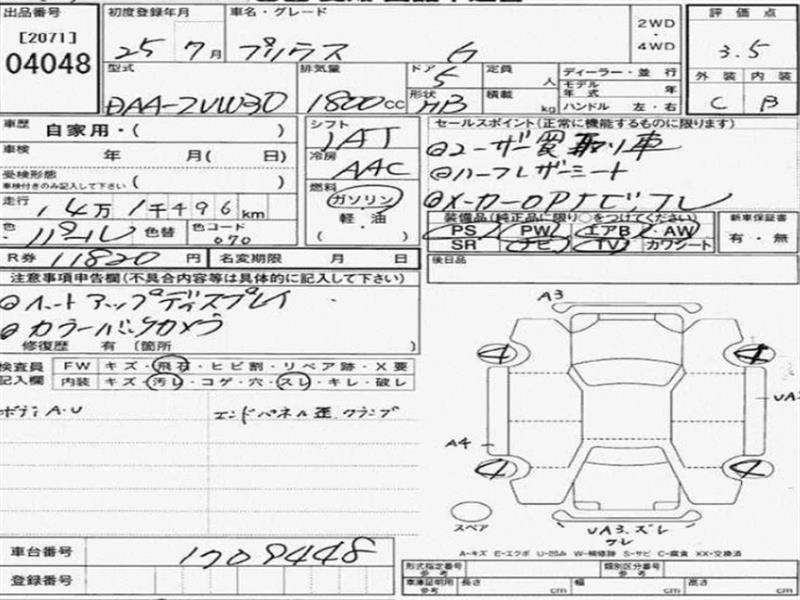 出品番号 初度登録年月 車名・グレード 2WD・4WD 評価点
[2071]
04048 25 7月 プリウス G 3.5
型式 排気量 ドア 5 定員 人 ディーラー・並行 外装 内装
モデル年式 年
DAA-ZVW30 1800cc 形状 HB 積載 kg ハンドル 左・右 C B
車歴 自家用・( ) シフト セールスポイント(正常に機能するものに限ります)
車検 年 月( 日) IAT ◎ユーザー買取り車
冷房 AAC ◎ハーフレザーシート
受検形態
車検付きのみ記入して下さい ( ) 燃料 ◎メーカーOPナビフレ
走行 14万1千496km ガソリン 装備品(純正品に限り○をつけてください) 新車保証書
軽・油 PS PW エアB AW 有・無
色 パール 色替 色コード 070 ( ) SR ナビ TV カワシート
R券 11820円 名変期限 月 日 後日品
注意事項申告欄(不具合内容等は具体的に記入して下さい)
◎ヘットアップディスプレイ A3
◎カラーバックカメラ
修復歴 有 [箇所 ] 4 4
検査員 FW キズ・飛石・ヒビ割・リペア跡・X要
記入欄 内装 キズ・汚レ・コゲ・穴・スレ・キレ・破レ
ボディA・U エンドパネル歪、クランプ UA
A4
4 4
スペア UA3.ズレ
ワレ
車台番号 1709448 A-キズ E-エクボ U-凹み W-補修跡 S-サビ C-腐食 XX-交換済
形式指定番号 参考 類別区分番号 参考
登録番号 車庫証明用 参考 長さ cm 幅 cm 高さ cm